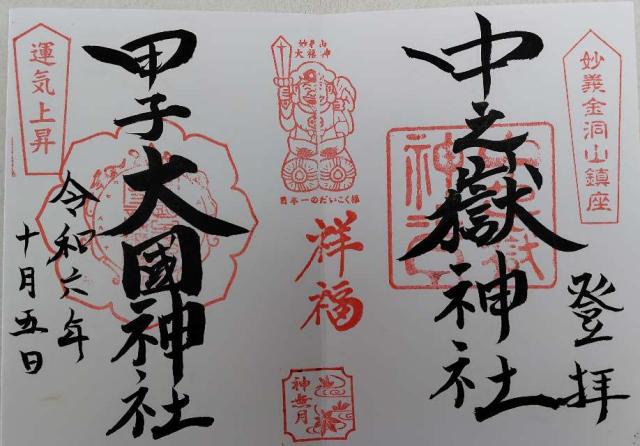 妙義金洞山鎮座
登拝
中之嶽神社
妙義山
大福神
日本一のだいこく様
祥福
神無月
甲子大國神社
運気上昇
令和六年
十月五日